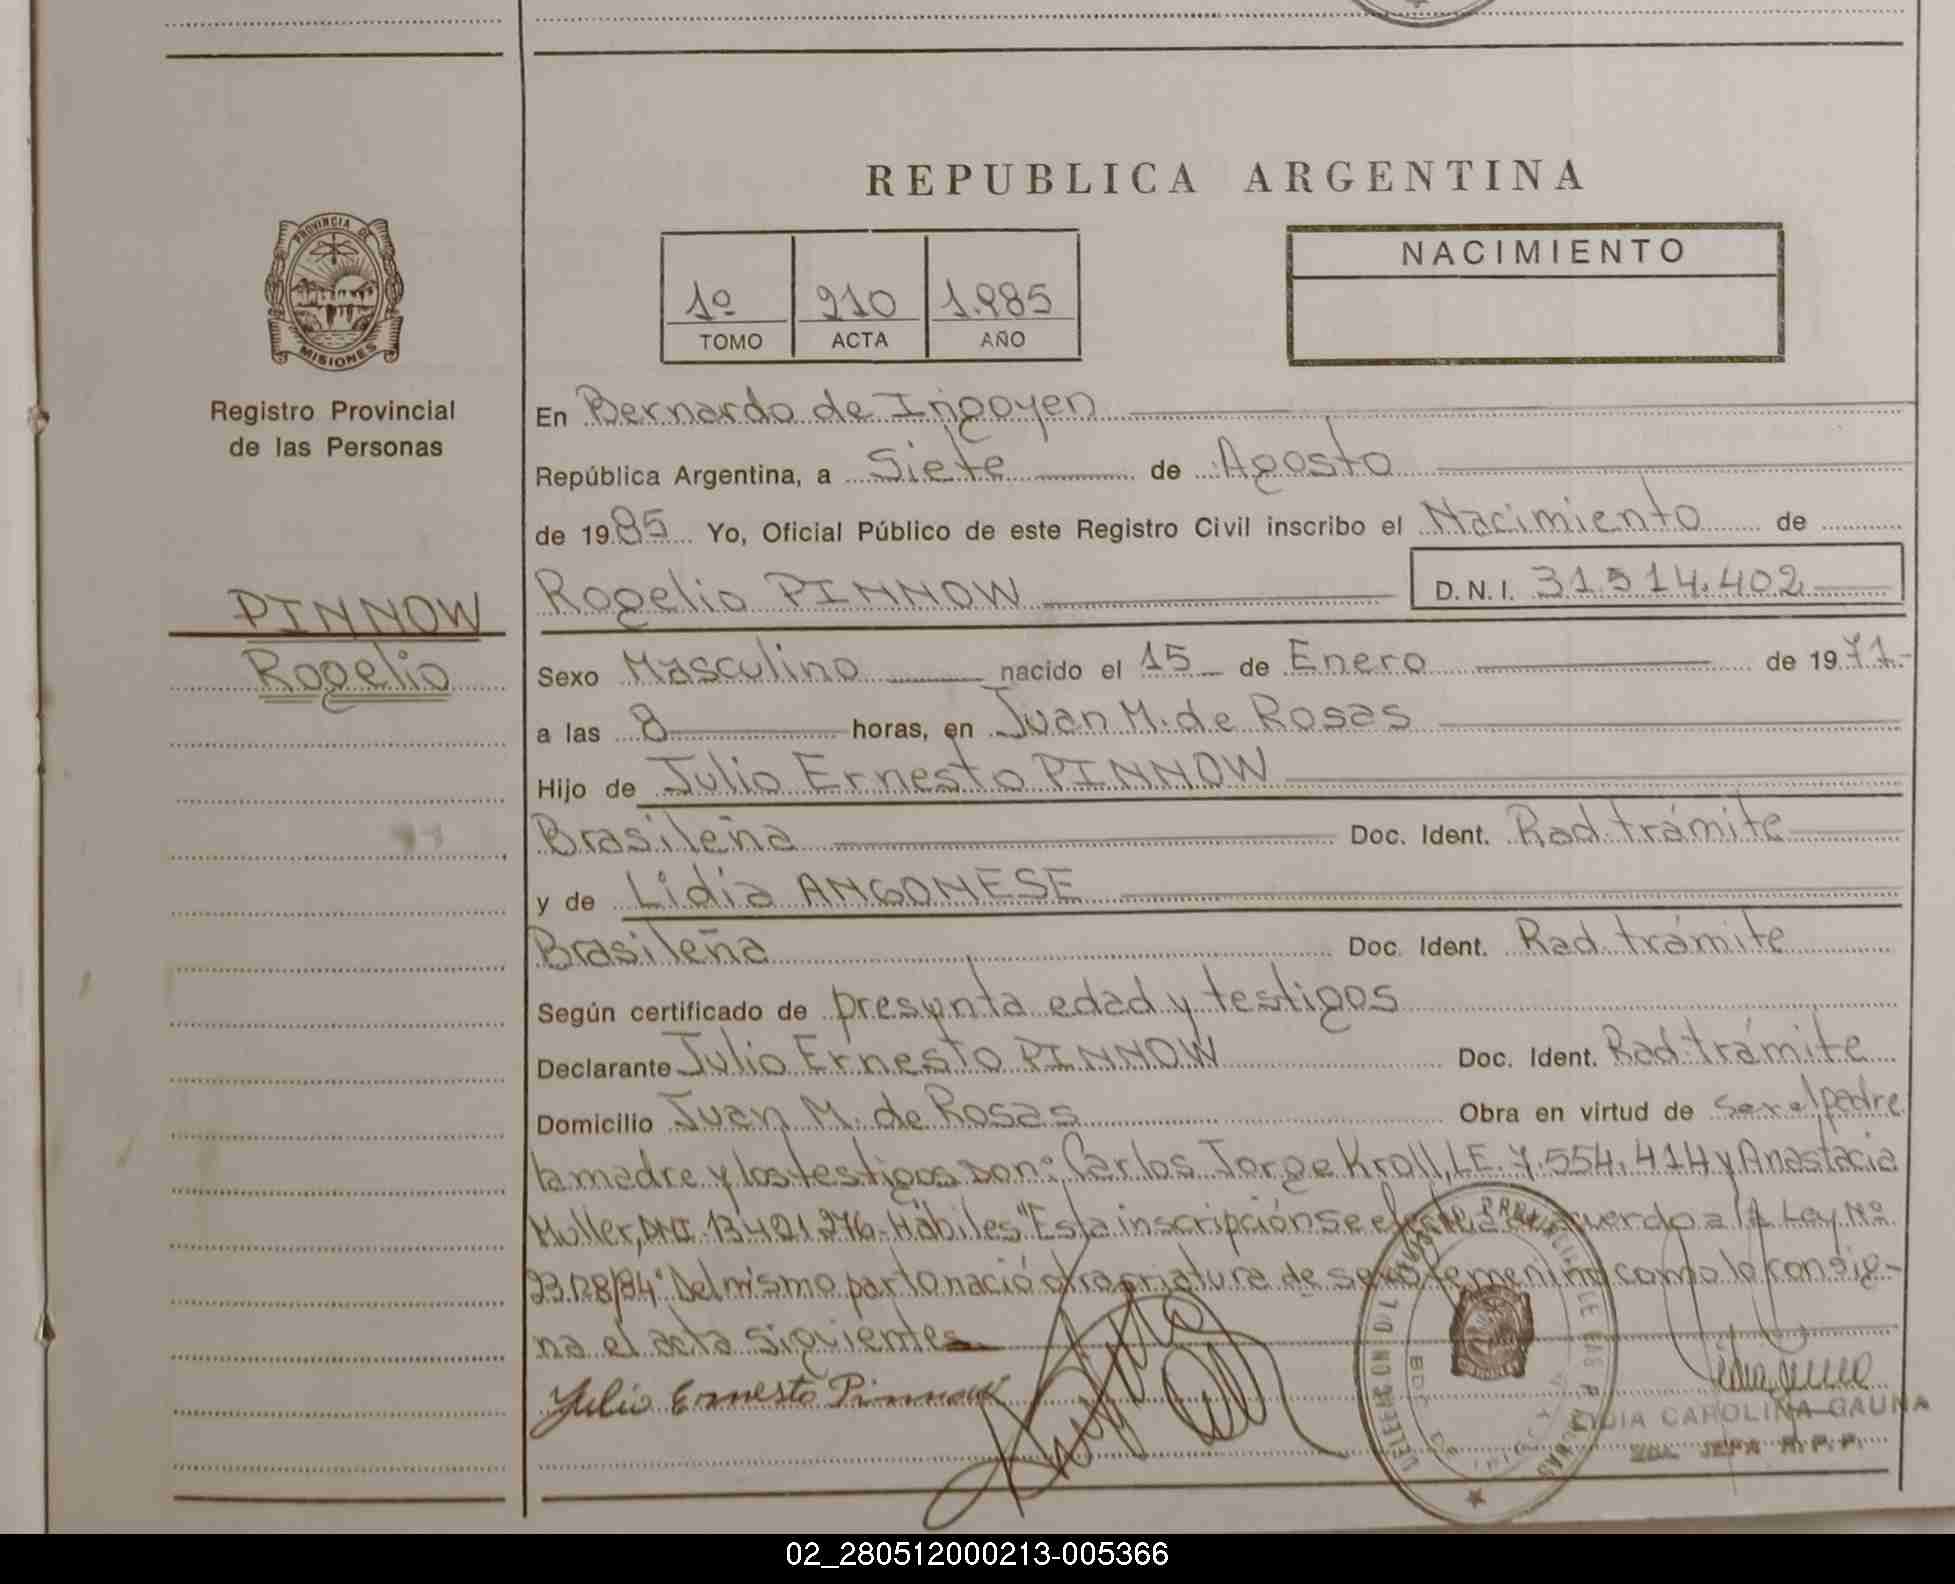 REPUBLICA ARGENTINA
PROVINCIA DE
MISIONES
Registro Provincial
de las Personas
1º 210 1.985
TOMO ACTA AÑO
NACIMIENTO
En Bernardo de Irigoyen
República Argentina, a Siete de Agosto
de 1985 Yo, Oficial Público de este Registro Civil inscribo el Nacimiento de
Rogelio PINNOW D. N. I. 31.514.402
PINNOW
Rogelio
Sexo Masculino nacido el 15 de Enero de 1971.-
a las 8 horas, en Juan M. de Rosas
Hijo de Julio Ernesto PINNOW
Brasileña Doc. Ident. Rad. trámite
y de Lidia ANGONESE
Brasileña Doc. Ident. Rad. trámite
Según certificado de presunta edad y testigos
Declarante Julio Ernesto PINNOW Doc. Ident. Rad. trámite
Domicilio Juan M. de Rosas Obra en virtud de ser el padre
la madre y los testigos Don: Carlos Jorge Kroll, L.E. 7.554.414 y Anastacia
Muller, DNI. 13.401.276.- Hábiles "Esta inscripción se efectúa de acuerdo a la Ley Nº
23.128/84" Del mismo parto nació otra criatura de sexo femenino como lo consig-
na el acta siguiente
Julio Ernesto Pinnow
LIDIA CAROLINA GAUNA
JEFA R. P. P.
02_280512000213-005366